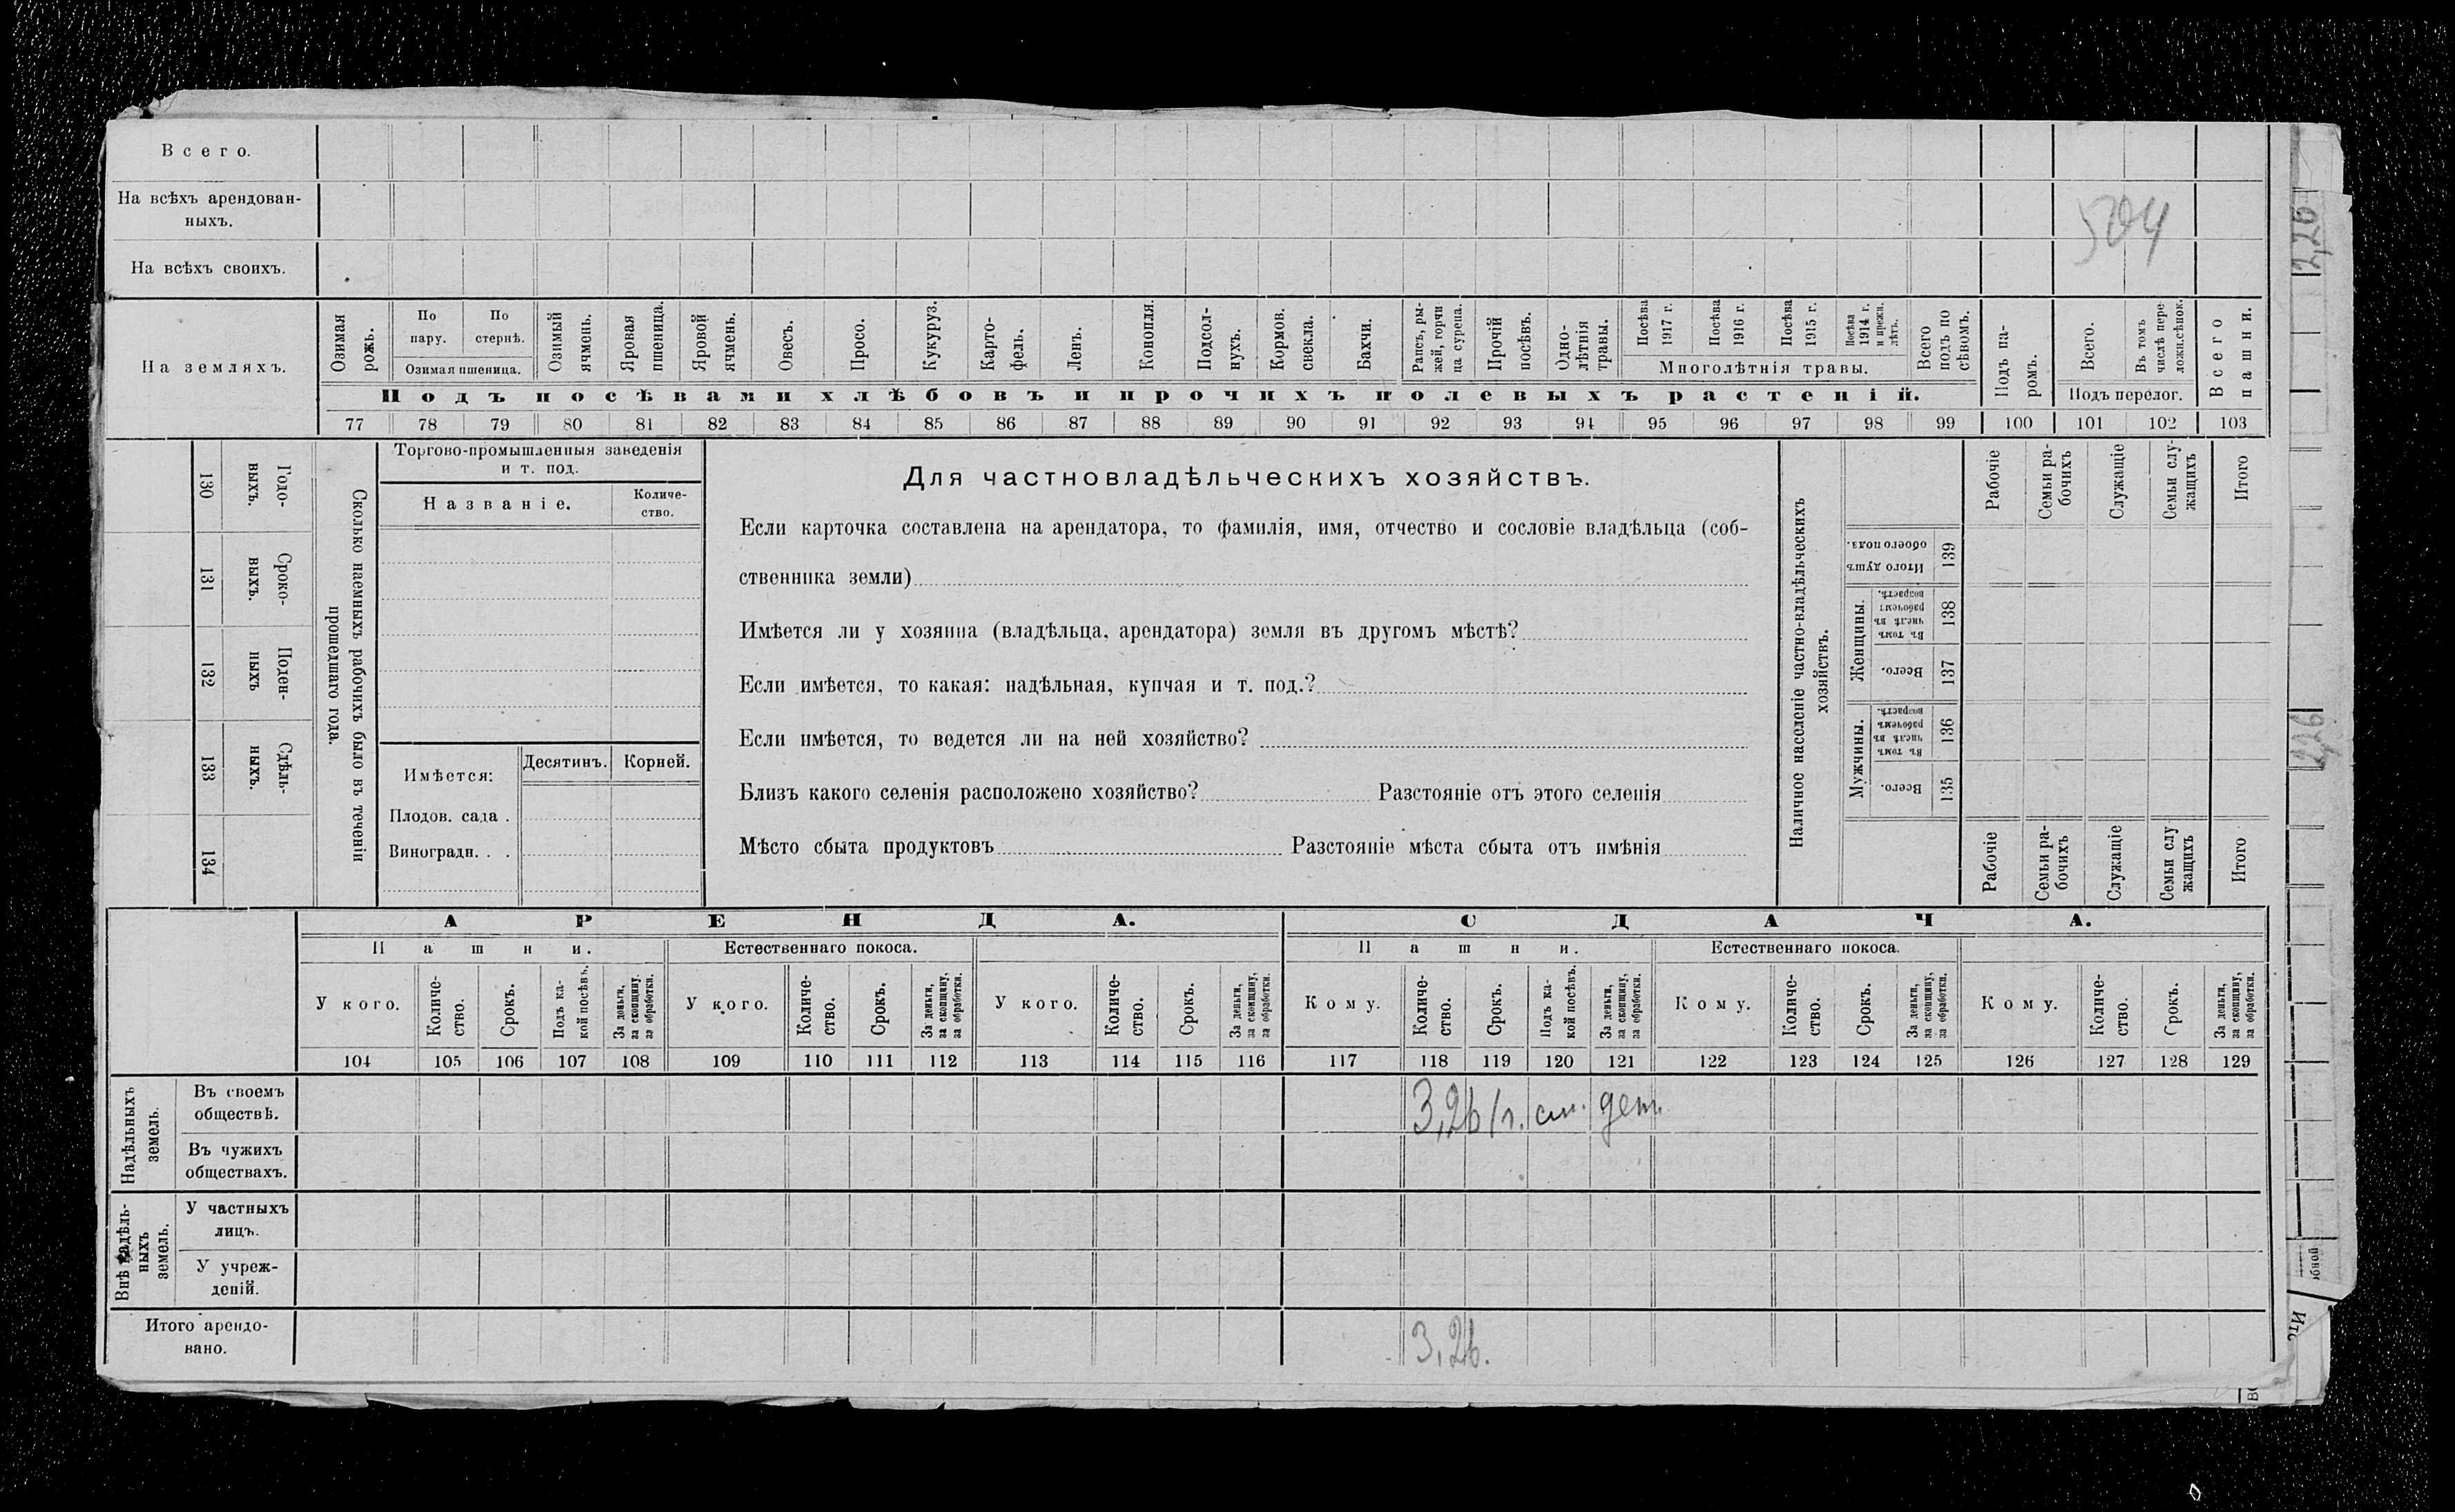 В с е г о.
На всѣхъ арендован-
ныхъ.
504
2,26
На всѣхъ своихъ.
На земляхъ.
Озимая рожь.
По пару.
По стернѣ.
Озимая пшеница.
Озимый ячмень.
Яровая пшеница.
Яровой ячмень.
Овесъ.
Просо.
Кукуруз.
Карто-
фель.
Ленъ.
Конопля.
Подсол-
нухъ.
Кормов. свекла.
Бахчи.
Рапсъ, ры-
жей, горчи
ца сурепа.
Прочій посѣвъ.
Одно-
лѣтнія
травы.
Посѣва 1917 г.
Посѣва 1916 г.
Посѣва 1915 г.
Посѣва 1914 г. и прежн. лѣтъ.
Многолѣтнія травы.
Всего подъ по сѣвомъ.
Подъ па-
ромъ.
Всего.
Въ томъ числѣ пере ложн.сѣнок.
Подъ перелог.
Всего пашни.
Подъ посѣвами хлѣбовъ и прочихъ полевыхъ растеній.
77 78 79 80 81 82 83 84 85 86 87 88 89 90 91 92 93 94 95 96 97 98 99 100 101 102 103
130 Годо-
выхъ.
131 Сроко-
ныхъ.
132 Поден-
ныхъ
133 Сдѣль-
ныхъ.
134
Сколько наемныхъ рабочихъ было въ теченіи
прошедшаго года.
Торгово-промышленныя заведенія
и т. под.
Названіе.
Количе-
ство.
Имѣется:
Десятинъ.
Корней.
Плодов. сада .
Виноградн. . .
Для частновладѣльческихъ хозяйствъ.
Если карточка составлена на арендатора, то фамилія, имя, отчество и сословіе владѣльца (соб-
ственника земли)
Имѣется ли у хозяина (владѣльца, арендатора) земля въ другомъ мѣстѣ?
Если имѣется, то какая: надѣльная, купчая и т. под.?
Если имѣется, то ведется ли на ней хозяйство?
Близъ какого селенія расположено хозяйство? Разстояніе отъ этого селенія
Мѣсто сбыта продуктовъ Разстояніе мѣста сбыта отъ имѣнія
Наличное населеніе частно-владѣльческихъ
хозяйствъ.
Рабочіе
Семьи ра-
бочихъ
Служащіе
Семьи слу-
жащихъ
Итого
Итого душъ обоего пола. 139
Женщины.
Въ томъ числѣ въ рабочемъ возрастѣ. 138
Всего. 137
Мужчины.
Въ томъ числѣ въ рабочемъ возрастѣ. 136
Всего. 135
Рабочіе
Семьи ра-
бочихъ
Служащіе
Семьи слу
жащихъ
Итого
2,26
АРЕНДА.
СДАЧА.
Пашни.
Естественнаго покоса.
Пашни.
Естественнаго покоса.
У кого.
Количе-
ство.
Срокъ.
Подъ ка-
кой посѣвъ.
За деньги,
за скопщину,
за обработки.
У кого.
Количе-
ство.
Срокъ.
За деньги,
за скопщину,
за обработки.
У кого.
Количе-
ство.
Срокъ.
За деньги,
за скопщину,
за обработки.
Кому.
Количе-
ство.
Срокъ.
Подъ ка-
кой посѣвъ.
За деньги,
за скопщину,
за обработки.
Кому.
Количе-
ство.
Срокъ.
За деньги,
за скопщину,
за обработки.
Кому.
Количе-
ство.
Срокъ.
За деньги,
за скопщину,
за обработки.
104 105 106 107 108 109 110 111 112 113 114 115 116 117 118 119 120 121 122 123 124 125 126 127 128 129
Надѣльныхъ
земель.
Въ своемъ
обществѣ.
3,26
Въ чужихъ
обществахъ.
Внѣ надѣль-
ныхъ
земель.
У частныхъ
лицъ.
У учреж-
деній.
Итого арендо-
вано.
3,26.